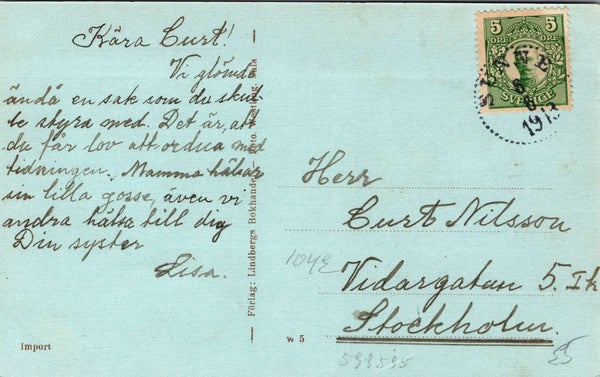 Kära Curt!
Vi glömde
ändå en sak som du skul-
le styra med. Det är, att
du får lov att ordna med
tidningen. Mamma hälsar
sin lilla gosse, även vi
andra hälsa till dig
Din syster
Lisa.
Import
Förlag: Lindbergs Bokhandel
Sala
w 5
5 5
ÖRE ÖRE
SVERIGE
6
8
1913
Herr
Curt Nilsson
Vidargatan 5.
Stockholm.
1042
599595
25